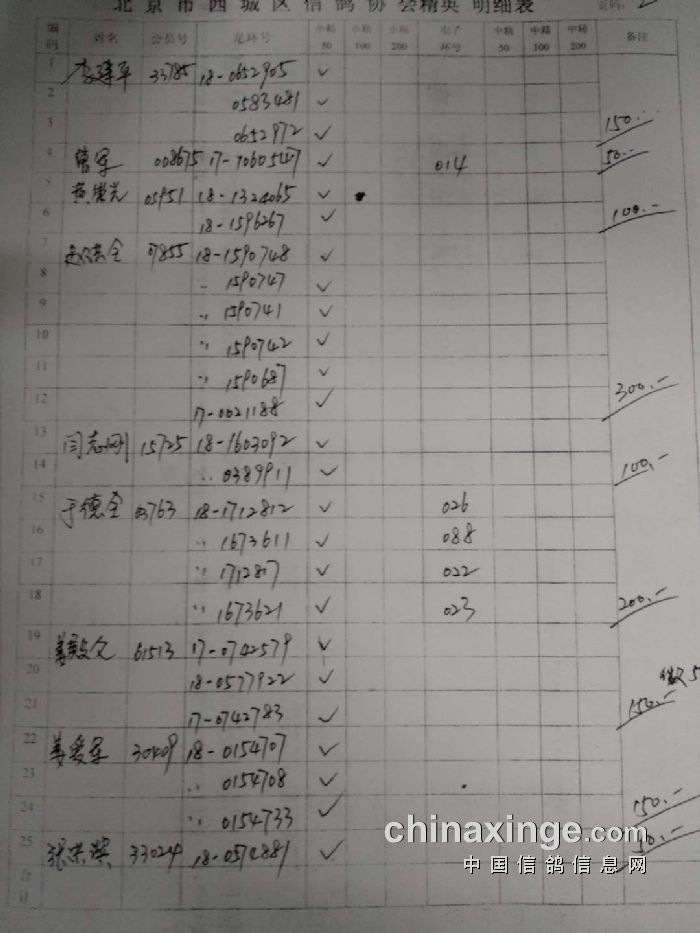 北京市西城区信鸽协会精英 明细表
页码：2
编码 姓名 会员号 足环号 小精50 小精100 小精200 电子环号 中精50 中精100 中精200 备注
1 李建平 33785 18-0652905 ✓
2 0583481 ✓
3 0652972 ✓ 150.-
4 曾军 008675 17-1060547 ✓ 014 50.-
5 黄荣光 05951 18-1324065 ✓
6 18-1596267 ✓ 100.-
7 赵洪全 07855 18-1590748 ✓
8 〃 1590747 ✓
9 〃 1590741 ✓
10 〃 1590742 ✓
11 〃 1590687 ✓
12 17-0021188 ✓ 300.-
13 闫志刚 15725 18-1603092 ✓
14 〃 0389911 ✓ 100.-
15 于德全 03763 18-1712812 ✓ 026
16 〃 1673611 ✓ 088
17 〃 1712817 ✓ 022
18 〃 1673621 ✓ 023 200.-
19 61513 17-0742579 ✓
20 18-0577922 ✓
21 17-0742783 ✓ 150.-
22 姜爱军 30409 18-0154707 ✓
23 〃 0154708 ✓
24 〃 0154733 ✓ 150.-
25 33024 18-0574881 ✓ 50.-
合计
chinaxinge.com
中国信鸽信息网